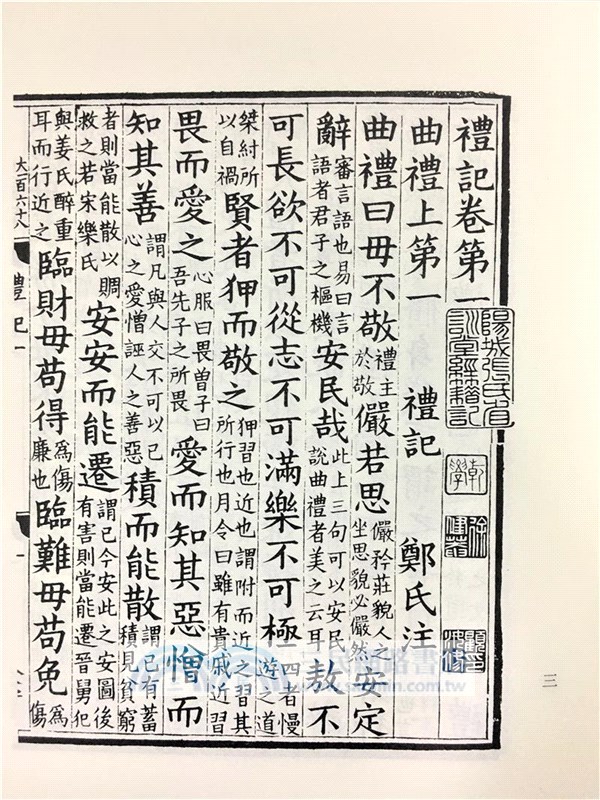 禮記卷第一
曲禮上第一 禮記 鄭氏注
曲禮曰毋不敬禮主於敬儼若思儼矜莊貌人之坐思貌必儼然安定
辭審言語也易曰言語者君子之樞機安民哉此上三句可以安民說曲禮者美之云耳敖不
可長欲不可從志不可滿樂不可極四者慢遊之道
桀紂所以自禍賢者狎而敬之狎習也近也謂附而近之習其所行也月令曰雖有貴戚近習
畏而愛之心服曰畏曾子曰吾先子之所畏愛而知其惡憎而
知其善謂凡與人交不可以己心之愛憎誣人之善惡積而能散謂己有蓄積見貧窮
者則當能散以賙救之若宋樂氏安安而能遷謂己今安此之安圖後有害則當能遷晉舅犯
與姜氏醉重耳而行近之臨財毋苟得為傷廉也臨難毋苟免為傷
大百六十八
禮記一
一
陽城張氏省訓堂經籍記
乾學
徐健菴
三